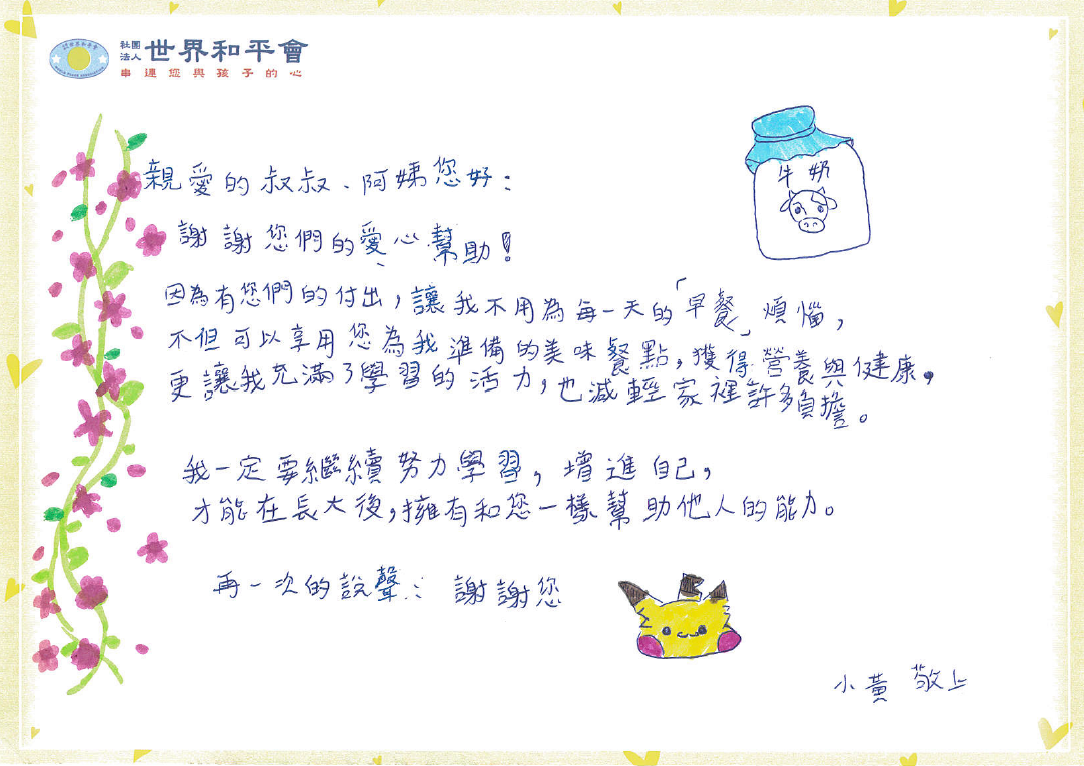 社團法人 世界和平會
串連您與孩子的心
親愛的叔叔、阿姨您好：
謝謝您們的愛心幫助！
因為有您們的付出，讓我不用為每一天的「早餐」煩惱，
不但可以享用您為我準備的美味餐點，獲得營養與健康，
更讓我充滿了學習的活力，也減輕家裡許多負擔。
我一定要繼續努力學習，增進自己，
才能在長大後，擁有和您一樣幫助他人的能力。
再一次的說聲：謝謝您
小黃 敬上
牛奶